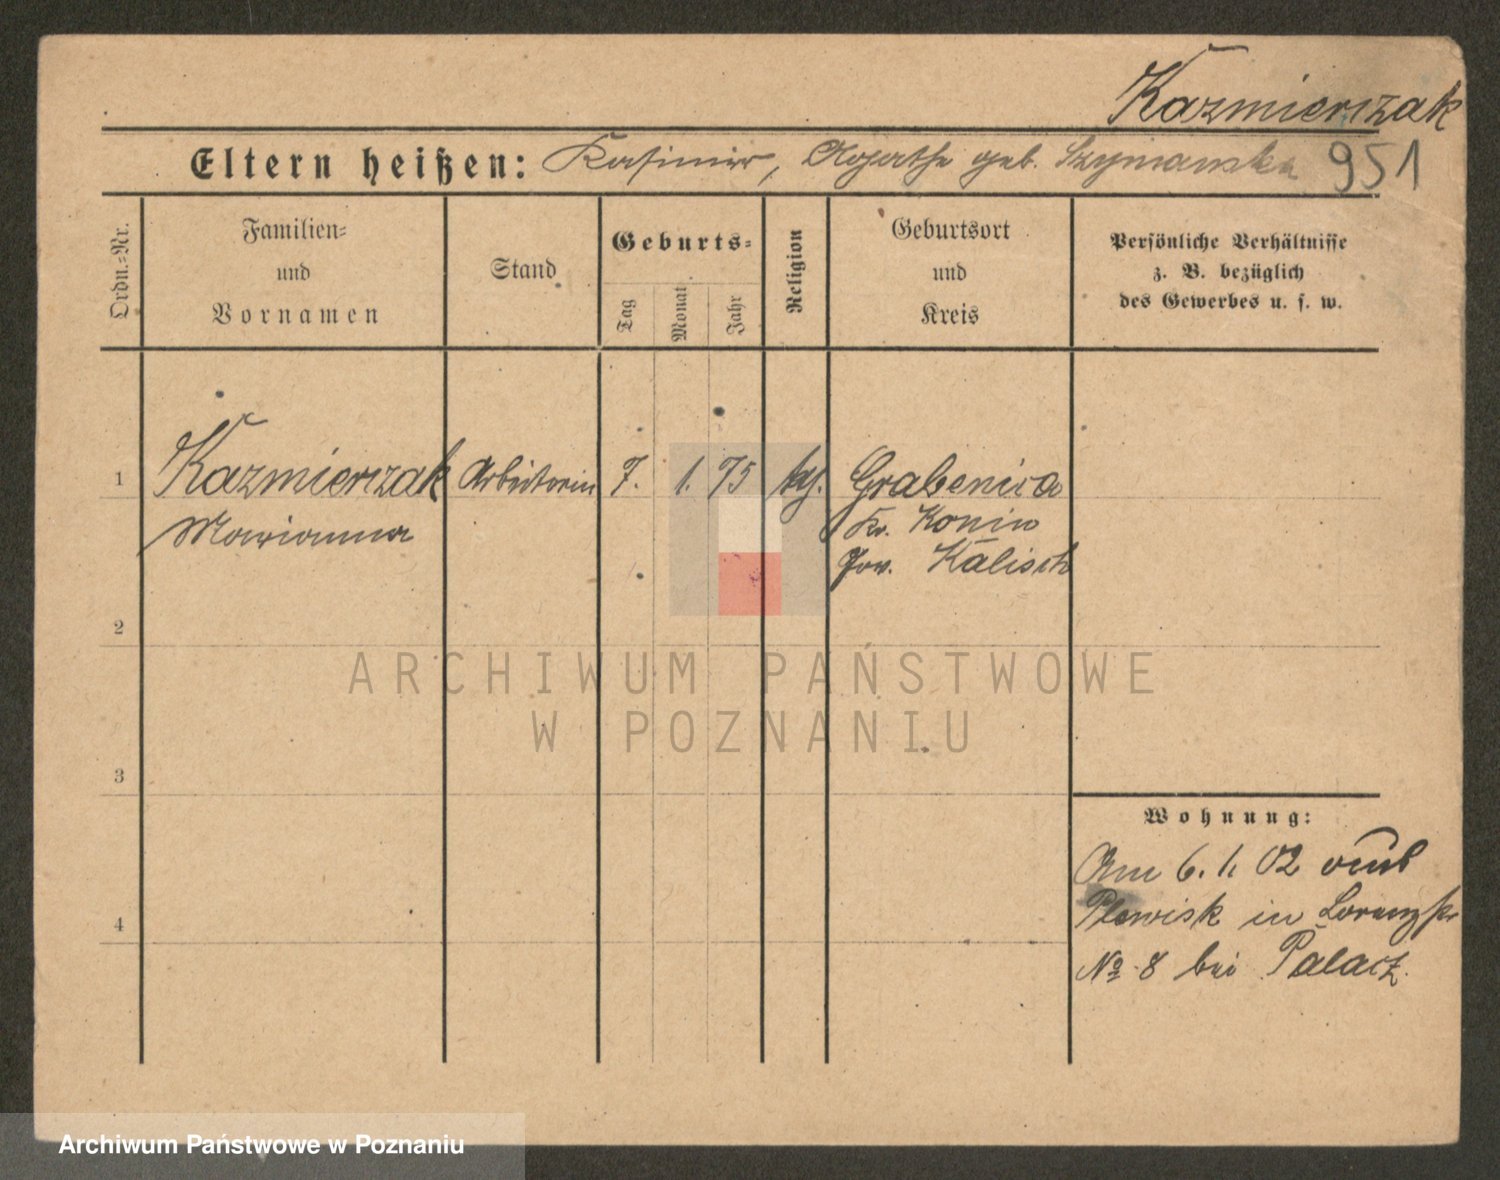 Kazmierczak
Eltern heißen: Kasimir, Agathe geb. Szymanska 951
Ordn.-Nr.
Familien-
und
Vornamen
Stand
Geburts-
Tag
Monat
Jahr
Religion
Geburtsort
und
Kreis
Persönliche Verhältnisse
z. B. bezüglich
des Gewerbes u. s. w.
1 Kazmierczak Arbeiterin 7. 1. 75 kath. Grabenica
Marianna Kr. Konin
Gov. Kalisch
2
ARCHIWUM PAŃSTWOWE
W POZNANIU
3
Wohnung:
Am 6. 1. 02 von
Plewisk in Lorenzstr
No 8 bei Palacz.
4
Archiwum Państwowe w Poznaniu